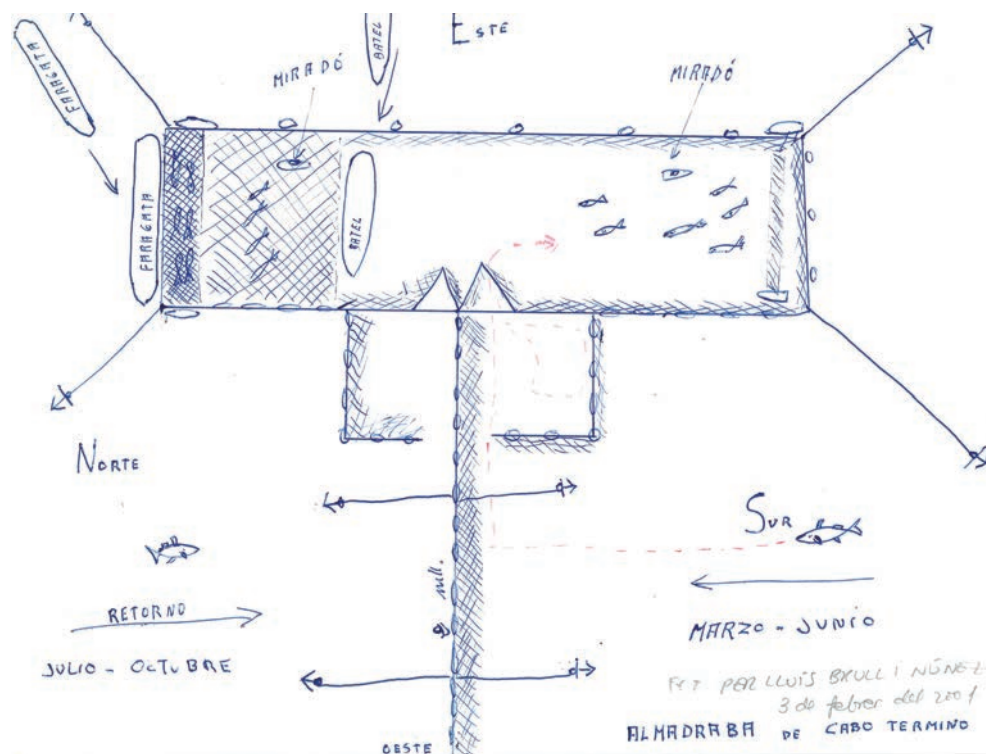 ESTE
FARAGATA
BATEL
MIRADÓ
MIRADÓ
FARAGATA
BATEL
NORTE
SUR
mll.
RETORNO
JULIO - OCTUBRE
MARZO - JUNIO
FET PER LLUÍS BRULL I NÚÑEZ
3 de febrer del 2001
OESTE
ALMADRABA DE CABO TERMINO